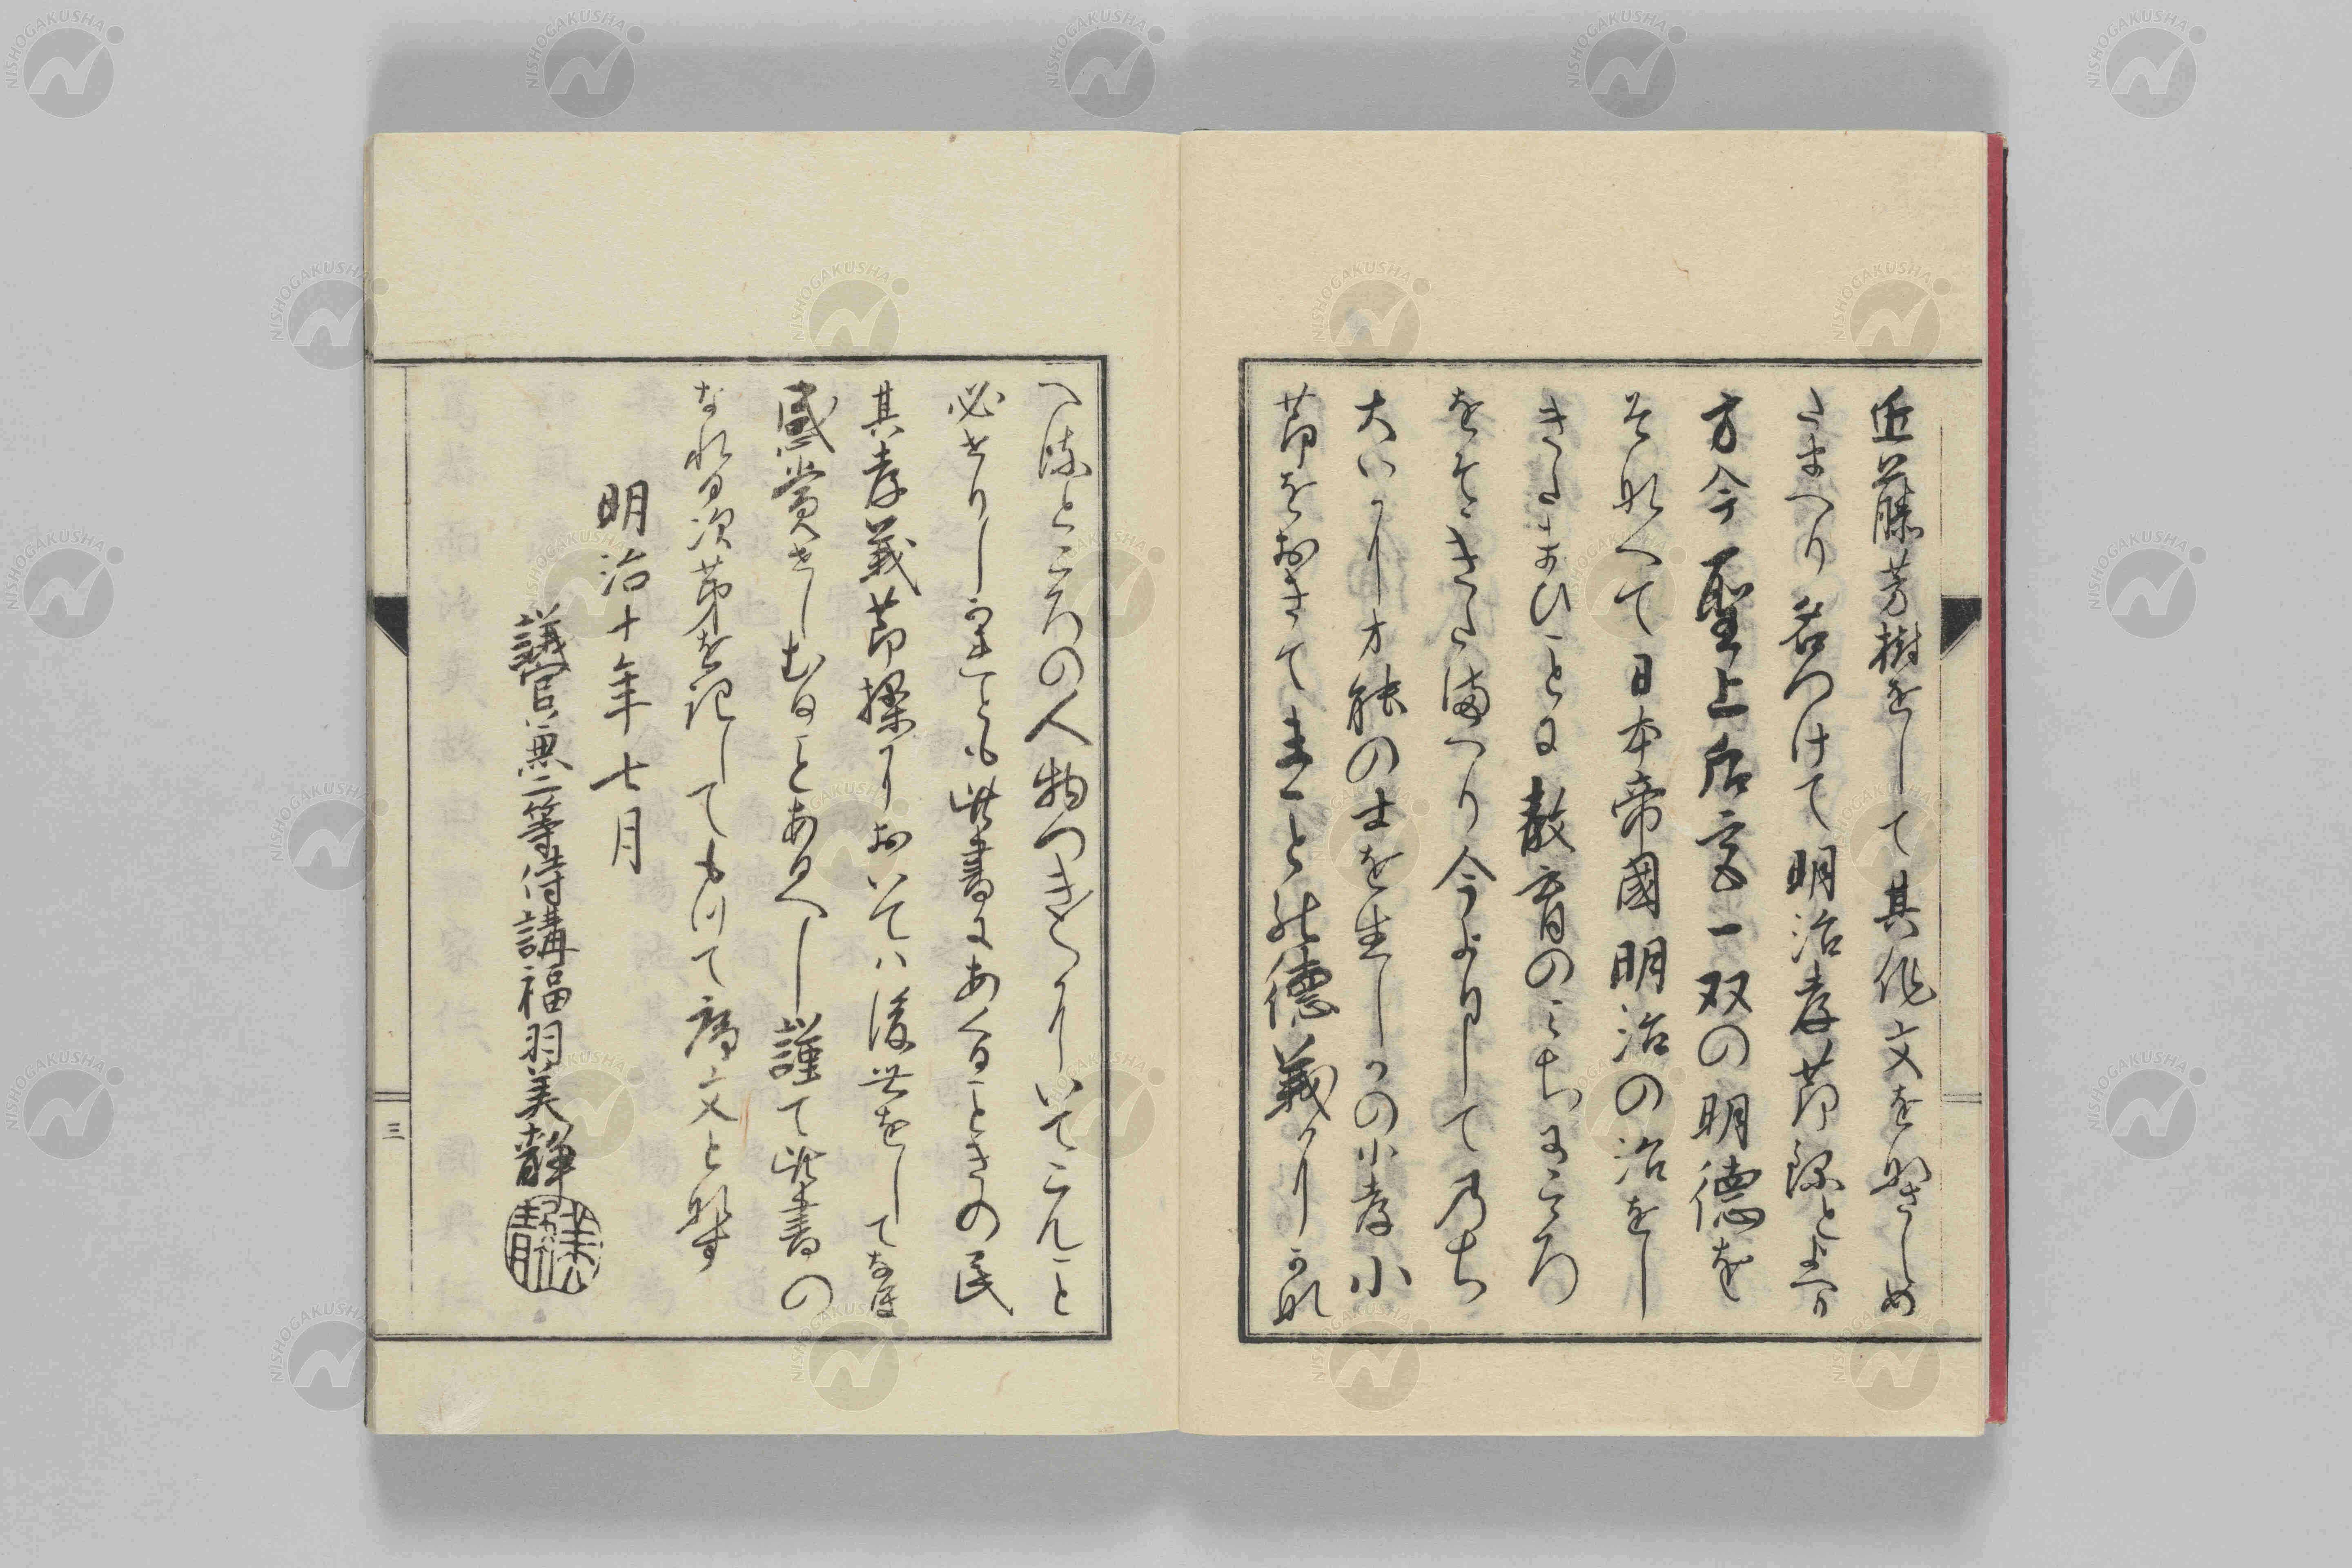 近藤芳樹をして其作文をなさしめ
たまへり名つけて明治孝節録とよへり
方今聖上后宮一双の明徳を
そなへて日本帝國明治の治をし
きたまひことに教育のみちにこゝろ
をそゝきたまへり今よりして乃ち
大いに才能の士を生しかの小孝小
節をおきてまことの徳義にかな
へるところの人物つき〳〵にいてこんこと
必せりしかれとも此書にあくるときの民
其孝義節操においては後世をしてなほ
感賞せしむることあるへし謹て此書の
なれる次第を記してもつて序文となす
明治十年七月
議官兼二等侍講福羽美静
美静
三
NISHOGAKUSHA